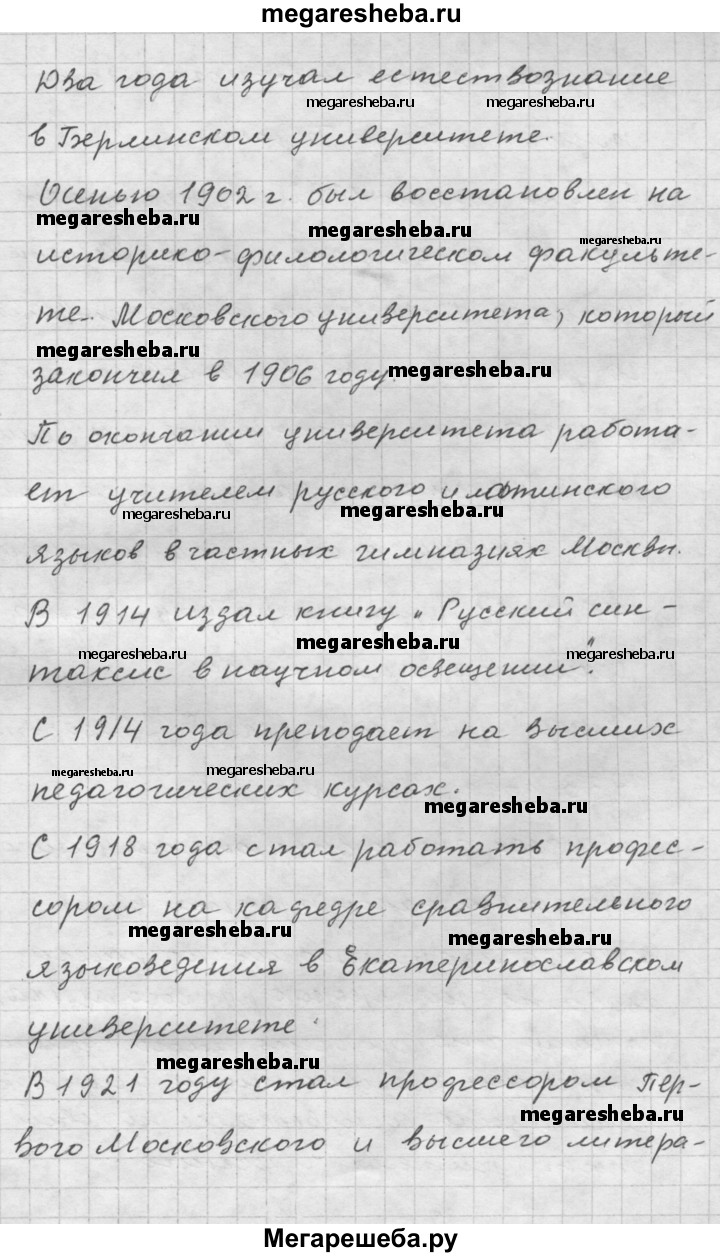 megaresheba.ru
Два года изучал естествознание
megaresheba.ru megaresheba.ru
в Берлинском университете.
Осенью 1902 г. был восстановлен на
megaresheba.ru megaresheba.ru megaresheba.ru
историко-филологическом факульте-
те. Московского университета, который
megaresheba.ru
закончил в 1906 году. megaresheba.ru
По окончании университета работа-
ет учителем русского и латинского
megaresheba.ru megaresheba.ru
языков в частных гимназиях Москвы.
В 1914 издал книгу „Русский син-
megaresheba.ru megaresheba.ru megaresheba.ru
таксис в научном освещении".
С 1914 года преподает на высших
megaresheba.ru megaresheba.ru
педагогических курсах.
megaresheba.ru
С 1918 года стал работать профес-
сором на кафедре сравнительного
megaresheba.ru megaresheba.ru
языковедения в Екатеринославском
университете.
megaresheba.ru
В 1921 году стал профессором Пер-
megaresheba.ru
вого Московского и высшего литера-
Мегарешеба.ру